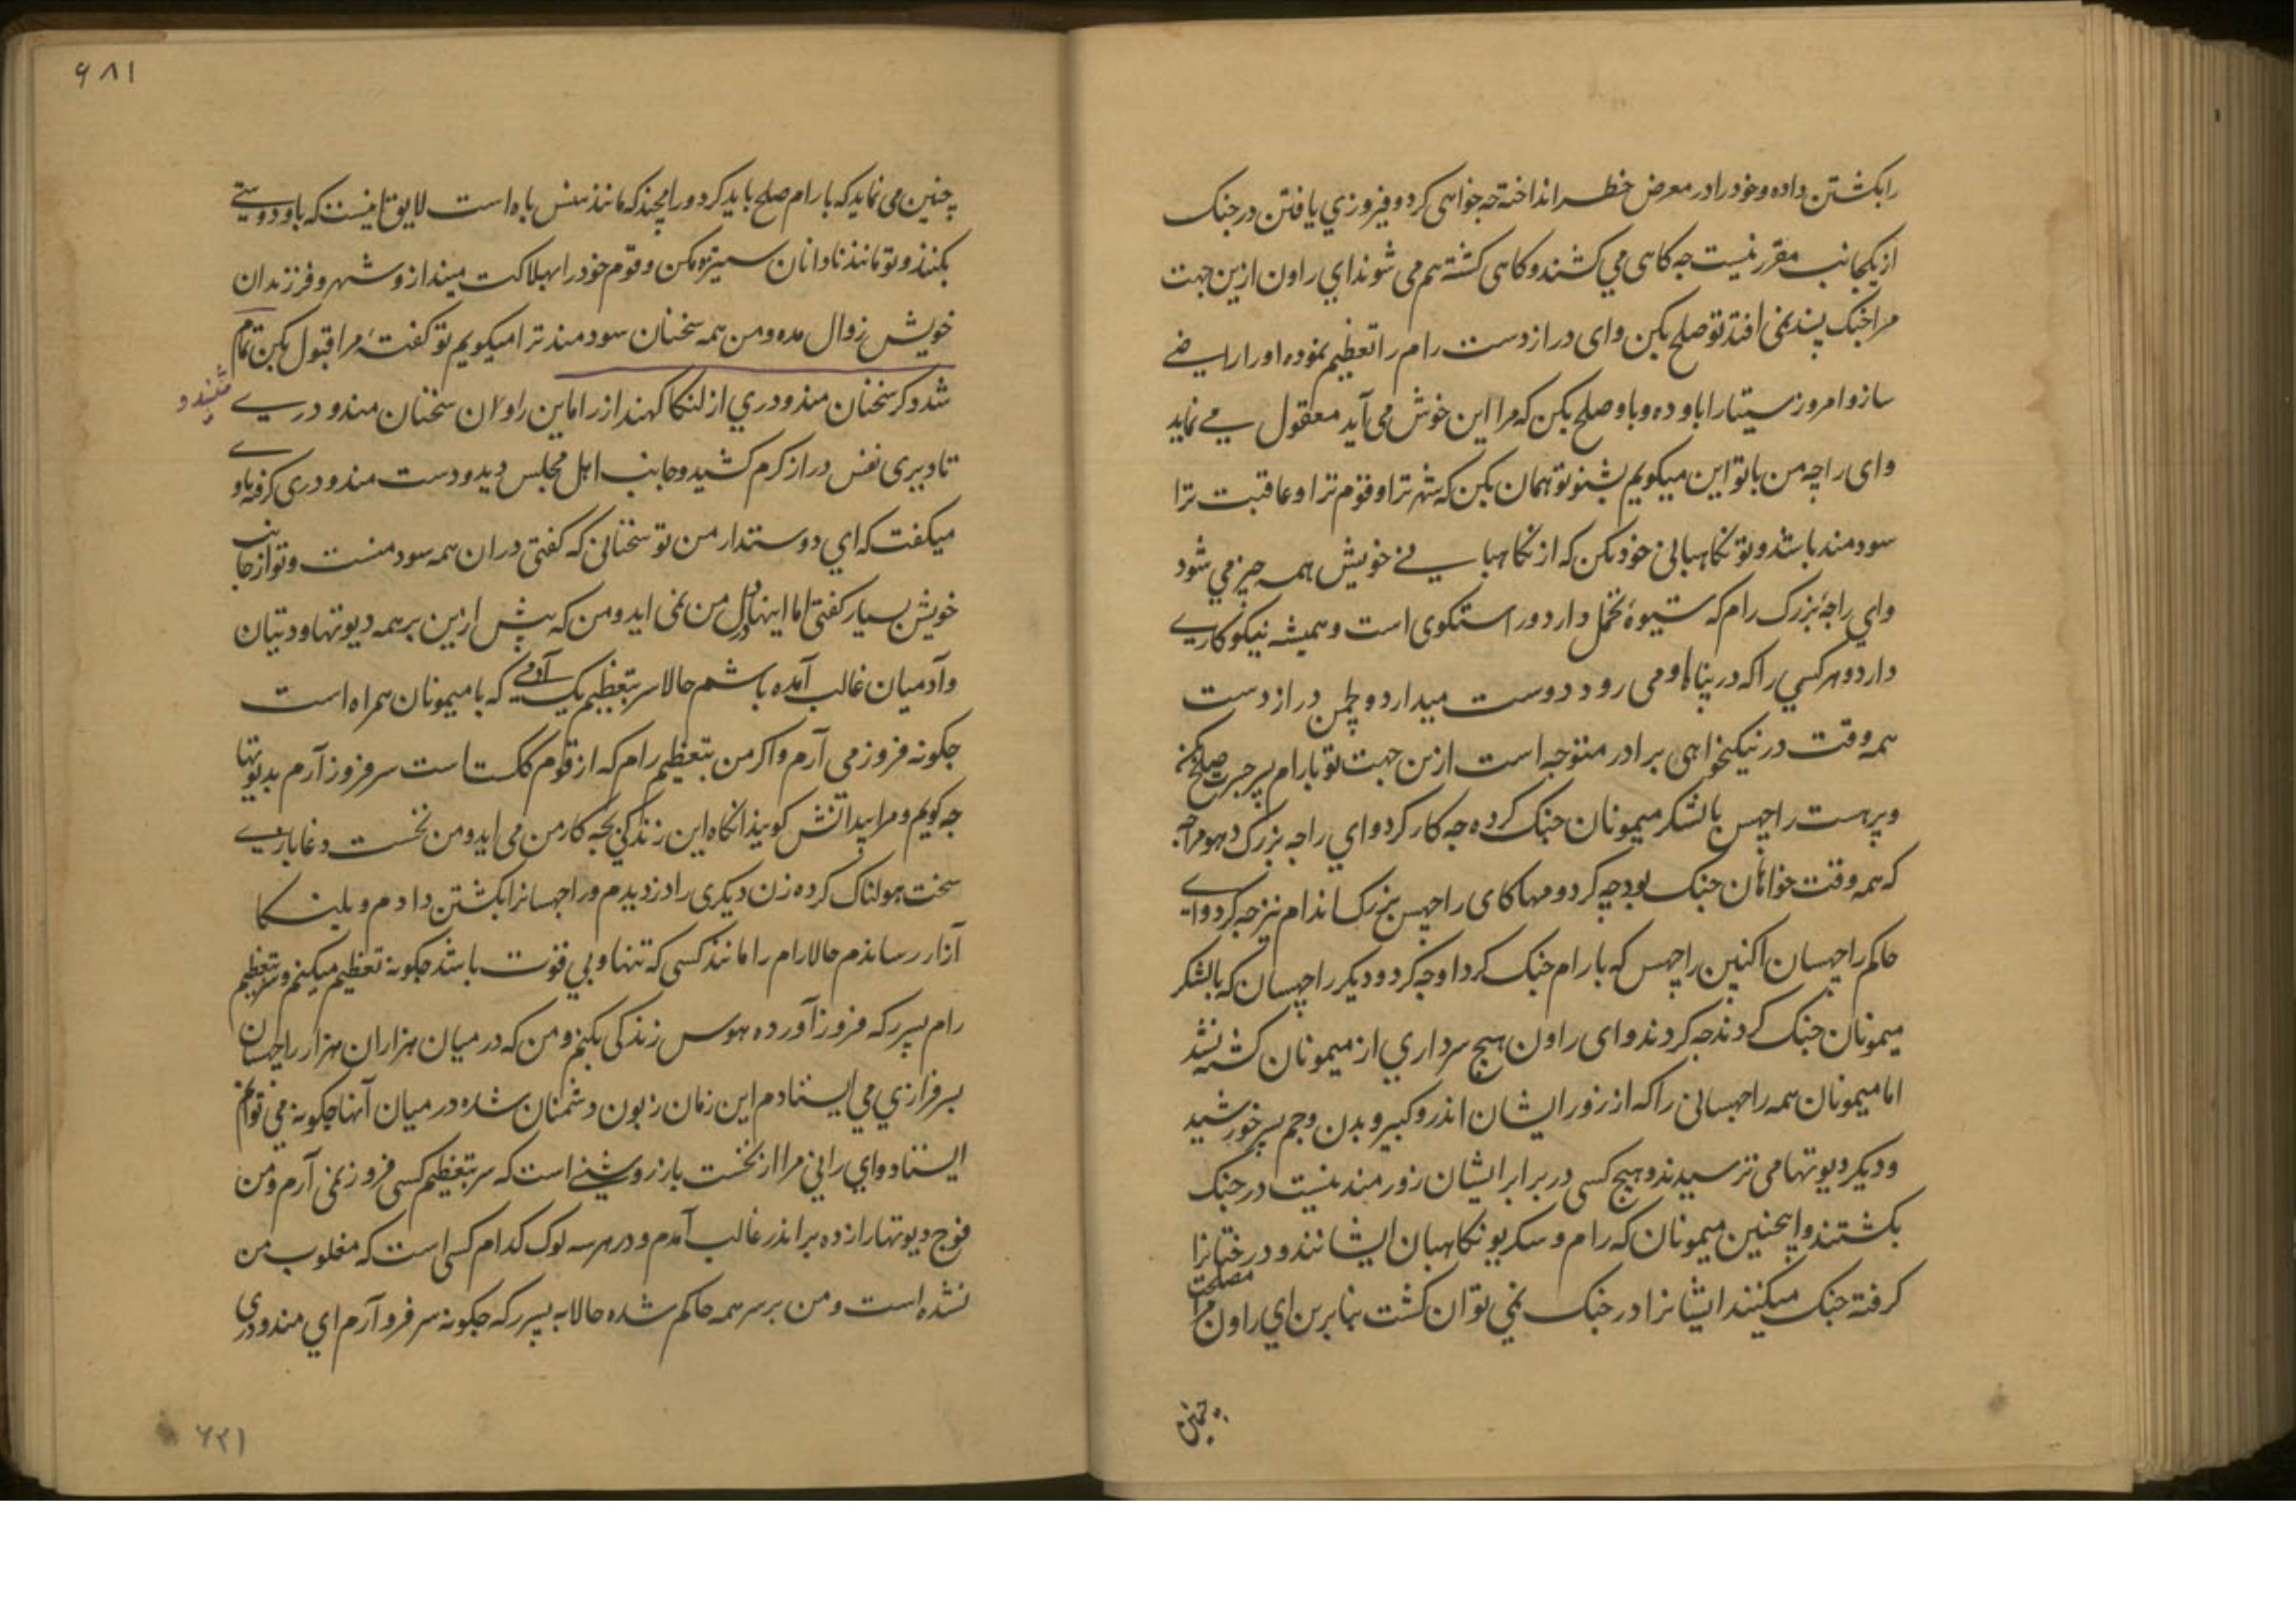 رابکشتن داده و خود را در معرض خطر انداخته چه خواهی کرد و فیروزي یافتن در جنک
از یکجانب مقرر نیست چه کاهی مي کشند و کاهی کشته هم می شوند اي راون ازین جهت
مرا جنک پسند نمی افتد تو صلح بکن و ای دراز دست رام را تعظیم نموده او را راضے
ساز و امروز سیتا را باو ده و باو صلح بکن که مرا این خوش می آید معقول مے نماید
و ای راجه من با تو این میکویم بشنو تو همان بکن که شهر ترا و قوم ترا و عاقبت ترا
سودمند باشد و تو نکاهبانی خود بکن که از نکاهبانے خویش همه چیز مي شود
واي راجهٔ بزرک رام که شیوهٔ تحمل دارد و راستکوی است و همیشه نیکوکاریے
دارد و هر کسي را که در پناه او می رود دوست میدارد و لچمن دراز دست
همه وقت در نیکخواهی برادر متوجه است ازین جهت تو با رام پسر جسرت صلح بکن
و پرهست راچهس با لشکر میمونان جنک کرده چه کار کرد و اي راجه بزرک دهومراچه
که همه وقت خواهان جنک بود چه کرد و مهاکای راچهس بزرک اندام نیز چه کرد و اے
حاکم راچهسان اکنین راچهس که با رام جنک کرد او چه کرد و دیکر راچهسان که بالشکر
میمونان جنک کردند چه کردند و ای راون هیچ سرداري از میمونان کشته نشد
اما میمونان همه راچهسانی را که از زور ایشان اندر و کبیر و بدن و جم پسر خورشید
و دیکر دیوتها می ترسیدند و هیچ کسی در برابر ایشان زورمند نیست در جنک
بکشتند و اینچنین میمونان که رام و سکریو نکاهبان ایشانند و درختانرا
کرفته جنک میکنند ایشانرا در جنک نمی توان کشت بنابرین اي راون مرا مصلحت
چنین
۶۸۱
چنین می نماید که با رام صلح باید کرد و رامچند که مانند منس باه است لایق تا نیست که باو دوستے
بکنند و تو مانند نادانان ستیزه مکن و قوم خود را بهلاکت مینداز و شهر و فرزندان
خویش زوال مده و من همه سخنان سودمند ترا میکویم تو کفتهٔ مرا قبول بکن تمام
شد ذکر سخنان مندودري از لنکا کهند از راماین راون سخنان مندودرے
تا دیری نفس دراز کرم کشید و جانب اهل مجلس دید و دست مندودری کرفته باو
میکفت که اي دوستدار من تو سخنانی که کفتی دران همه سود منست و تو از جانب
خویش بسیار کفتی اما اینها در دل من نمی اید و من که پیش ازین بر همه دیوتها و دیتیان
و آدمیان غالب آمده باشم حالا سر بتعظیم یک آدمے که با میمونان همراه است
چکونه فروز می آرم و اکر من بتعظیم رام که از قوم ککست است سر فروز آرم بدیوتها
چه کویم و مرا چه کویند انکاه این زندکی بچه کار من می اید و من نخست دغابازے
سخت هولناک کرده زن دیکری را دزدیدم و راچهسانرا بکشتن دادم و بلنکا
آزار رساندم حالا رام را مانند کسی که تنها و بي قوت باشد چکونه تعظیم میکنم و بتعظیم
رام سر فروز آورده هوس زندکی بکنم و من که در میان هزاران هزار راچهسان
بسرفرازي مي ایستادم این زمان زبون دشمنان شده در میان آنها چکونه می توانم
ایستاد و اي رانی مرا از نخست باز روشنے است که سر بتعظیم کسی فروز نمی آرم و من
فوج دیوتها را زده بر اندر غالب آمدم و در هر سه لوک کدام کسی است که مغلوب من
نشده است و من بر سر همه حاکم شده حالا چکونه سر فرو آرم اي مندودری
۶۳۱